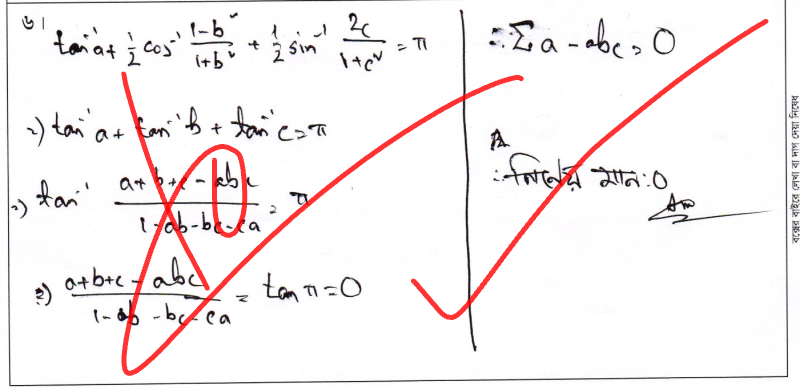 ৬।
tan⁻¹a + 1/2 cos⁻¹ (1-b²)/(1+b²) + 1/2 sin⁻¹ 2c/(1+c²) = π
⇒) tan⁻¹a + tan⁻¹b + tan⁻¹c = π
⇒) tan⁻¹ (a+b+c-abc)/(1-ab-bc-ca) = π
⇒) (a+b+c-abc)/(1-ab-bc-ca) = tan π = 0
∴ Σa - abc = 0
∴ নির্ণেয় মান: 0
Ans
বক্সের বাইরে লেখা বা দাগ দেয়া নিষেধ